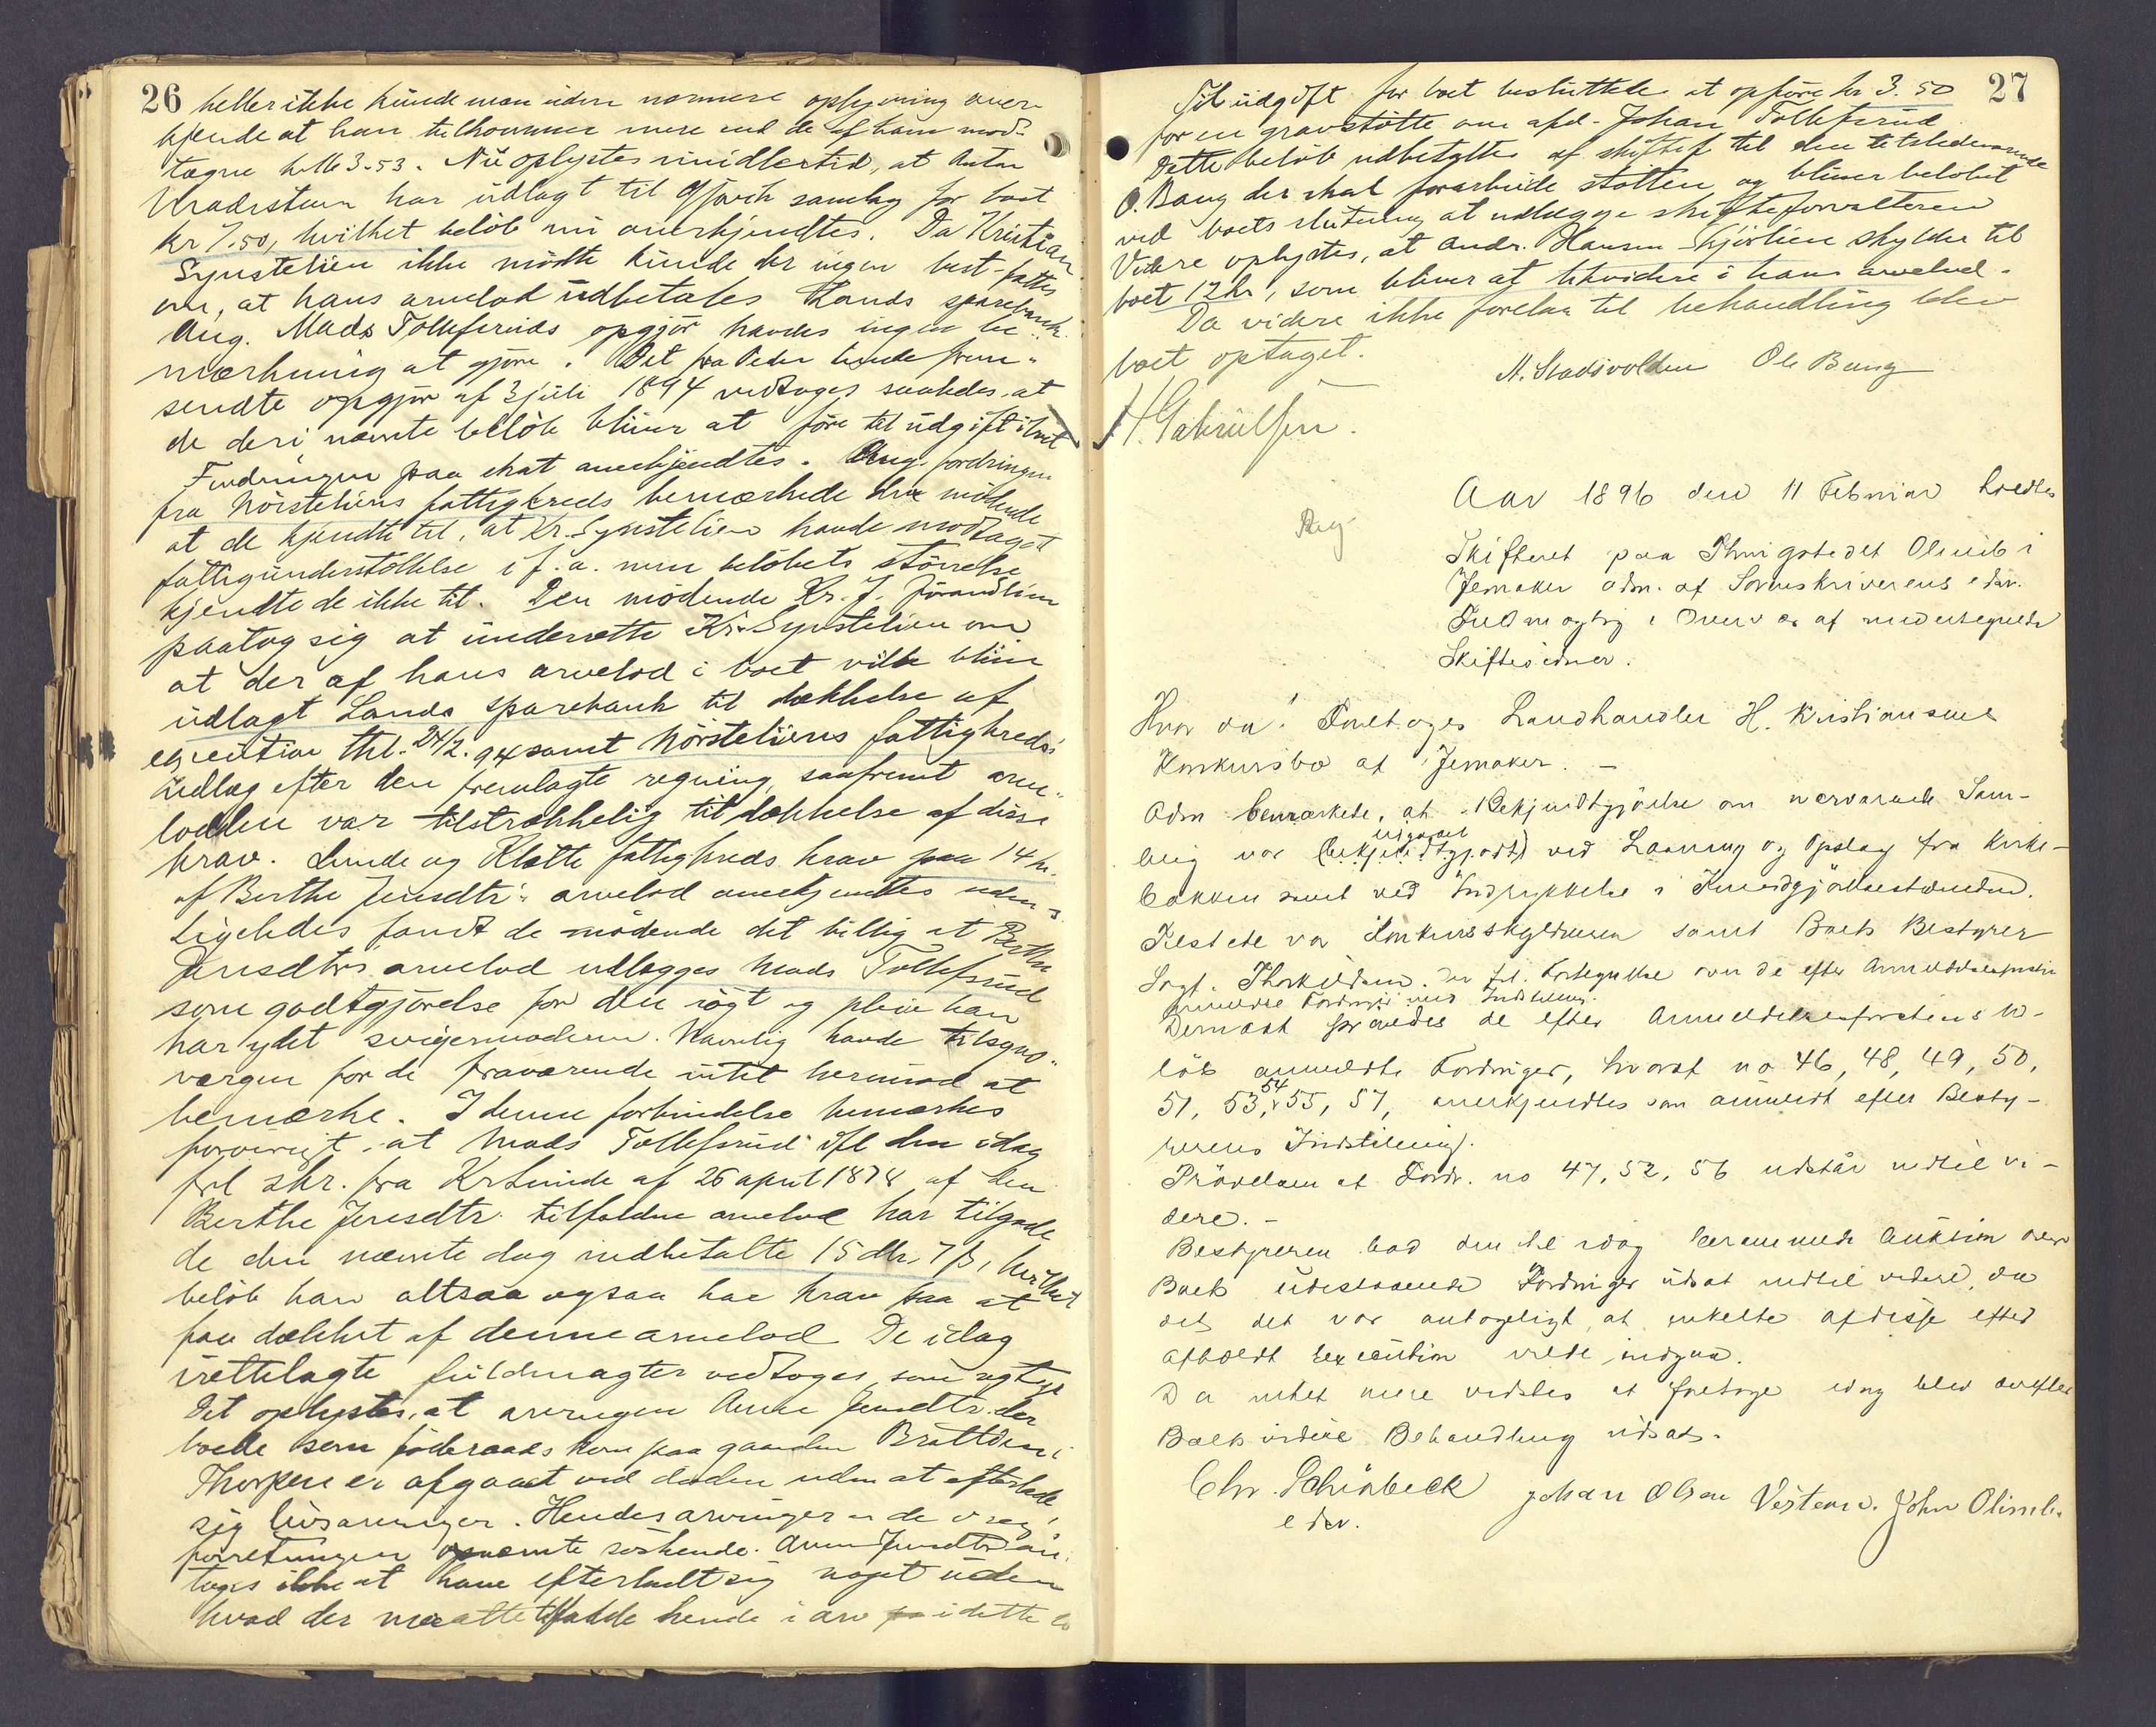 26
heller ikke kunde man uden nærmere oplysning aner-
kjende at han tilkommer mere end de af ham mod-
tagne kr 3.53. Nu oplystes imidlertid, at Anton
har udlagt til Gjøvik samlag for boet
kr 7.50, hvilket beløb nu anerkjendtes. Da Kristian
Synstelien ikke mødte kunde der ingen best. fattes
om, at hans arvelod udbetales Lands sparebank.
Ang. Mads Tollefsruds opgjør havdes ingen be-
mærkning at gjøre. Det fra Peder Lunde frem-
sendte opgjør af 3 juli 1894 vedtoges saaledes, at
de deri nævnte beløb bliver at føre til udgift i boet
Fordringen paa skat anerkjendtes. Ang. fordringen
fra Nørsteliens fattigkreds bemærkede de mødende
at de kjendte til, at Kr. Synstelien havde modtaget
fattigunderstøttelse i f. a. men beløbets størrelse
kjendte de ikke til. Den mødende Kr. J.
paatog sig at underrette Kr. Synstelien om
at der af hans arvelod i boet vilde blive
udlagt Lands sparebank til dækkelse af
execution thl. 24/2. 94 samt Nørsteliens fattigkreds's
udlæg efter den fremlagte regning, saafremt arve-
lodden var tilstrækkelig til dækkelse af disse
krav. Lunde og Klætte fattigkreds krav paa 14 kr.
af Berthe Jensdtr's arvelod anerkjendtes
Ligeledes fandt de mødende det billig at Berthe
Jensdtrs arvelod udlægges Mads Tollefsrud
som godtgjørelse for den røgt og pleie han
har ydet svigermoderen. Navnlig havde tilsyns-
værgen for de fraværende intet herimod at
bemærke. I denne forbindelse bemærkes
forøvrigt, at Mads Tollefsrud ifl den idag
frl skr. fra Kr Lunde af 26 april 1878 af den
Berthe Jensdtr. tilfaldne arvelod har tilgode
de den nævnte dag indbetalte 15 dlr. 7 β, hvilket
beløb han altsaa ogsaa har krav paa at
faa dækket af denne arvelod De idag
irettelagte fuldmagter vedtoges som
Det oplystes, at arvingen Anne Jensdtr. der
boede som føderaadskone paa gaarden BrattDen i
Thorpen er afgaaet ved døden uden at efterlade
sig livsarvinger. Hendes arvinger er de i
forretningen opnævnte søskende. Anne Jensdtr an-
toges ikke at have efterladt sig noget uden
hvad der maatte tilfalde hende i arv i dette bo

27
Til udgift for boet besluttedes at opføre kr 3.50
for en gravstøtte over afd. Johan Tollefsrud
Dette beløb udbetaltes af skiftef til den tilstedeværende
O. Bang der skal forarbeide støtten og bliver beløbet
ved boets slutning at udlægge skifteforvalteren
Videre oplystes, at Andr. Hansen Skjølien skylder til
boet 12 kr, som bliver at likvidere i hans arvelod.
Da videre ikke forelaa til behandling blev
boet optaget.
N. Stadsvolden Ole Bang
H. Gabrielsen.

Aar 1896 den 11 Februar holdtes
Skifteret paa Thingstedet Olimb i
Jevnaker adm. af Sorenskriverens edsv.
Fuldmægtig i Overvær af undertegnede
Skiftesvidner.
Hvor da! Foretoges Landhandler H. Kristiansens
Konkursbo af Jevnaker. –
Adm bemærkede, at Bekjendtgjørelse om nærværende Sam-
ling var (bekjendtgjordt) udgaaet ved Læsning og Opslag fra Kirke-
bakken samt ved Indrykkelse i Kundgjørelsestidenden.
Tilstede var Konkursskyldneren samt Boets Bestyrer
Sagf. Thorkildsen. Der frl. Fortegnelse over de efter Anmeldelsesfristen
anmeldte Fordringer med Indstilling.
Dernæst prøvedes de efter Anmeldelsesfristens Ud-
løb anmeldte Fordringer, hvoraf no 46, 48, 49, 50,
51, 53, 54 55, 57, anerkjendtes som anmeldt efter Besty-
rerens Indstilling.
Prøvelsen af Fordr. no 47, 52, 56 udstår indtil vi-
dere. –
Bestyreren bad den til idag berammede Auktion over
Boets udestaaende Fordringer udsat indtil videre, da
det var antageligt, at enkelte af disse efter
afholdt Execution vilde indgaa.
Da intet mere vidstes at foretage idag blev derefter
Boets videre Behandling udsat.
Chr. Schinbeck
edsv.
Johan Olsen Vestern. John Olimb.